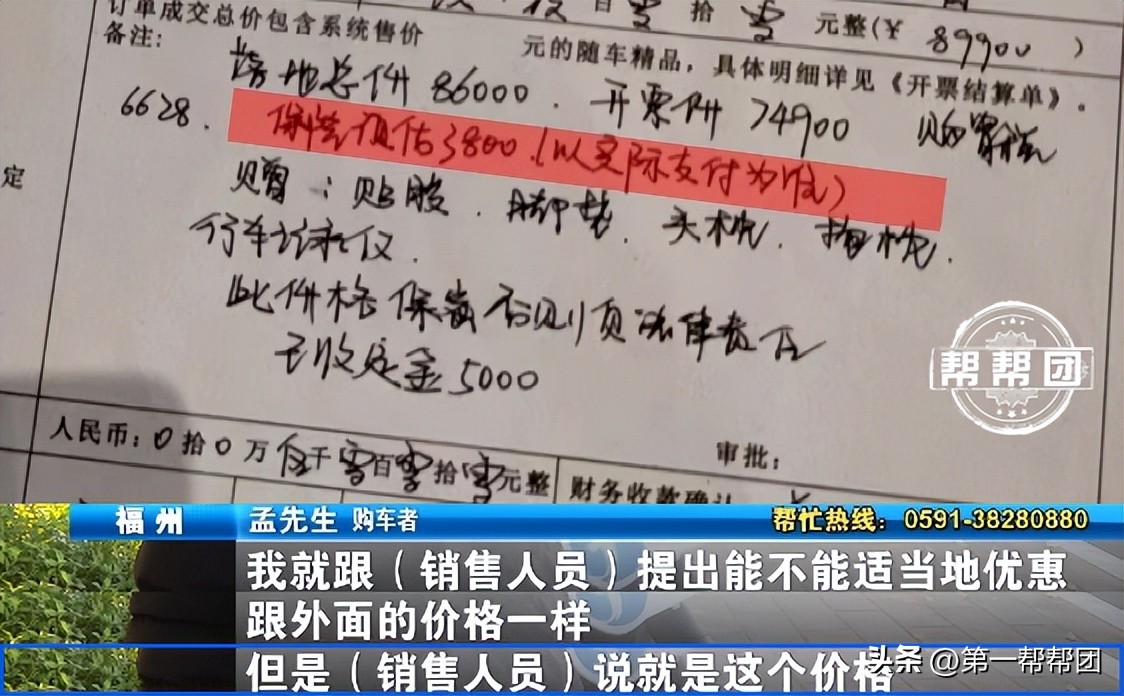 百 拾 元整(¥ 89900 )
订单成交总价包含系统售价 元的随车精品，具体明细详见《开票结算单》。
备注:
落地总价 86000 . 开票价 74900 购置税
6628 .
保险预估3800.(以实际支付为准)
赠：贴膜 . 脚垫 . 头枕 .
行车记录仪 .
定
此价格保
已收定金5000
人民币：0 拾 0 万 伍 千 零 百 零 拾 零 元整
审批：
财务收款确认
帮帮团
福州 孟先生 购车者 帮忙热线：0591-38280880
我就跟（销售人员）提出能不能适当地优惠
跟外面的价格一样
但是（销售人员）说就是这个价格
头条 @第一帮帮团